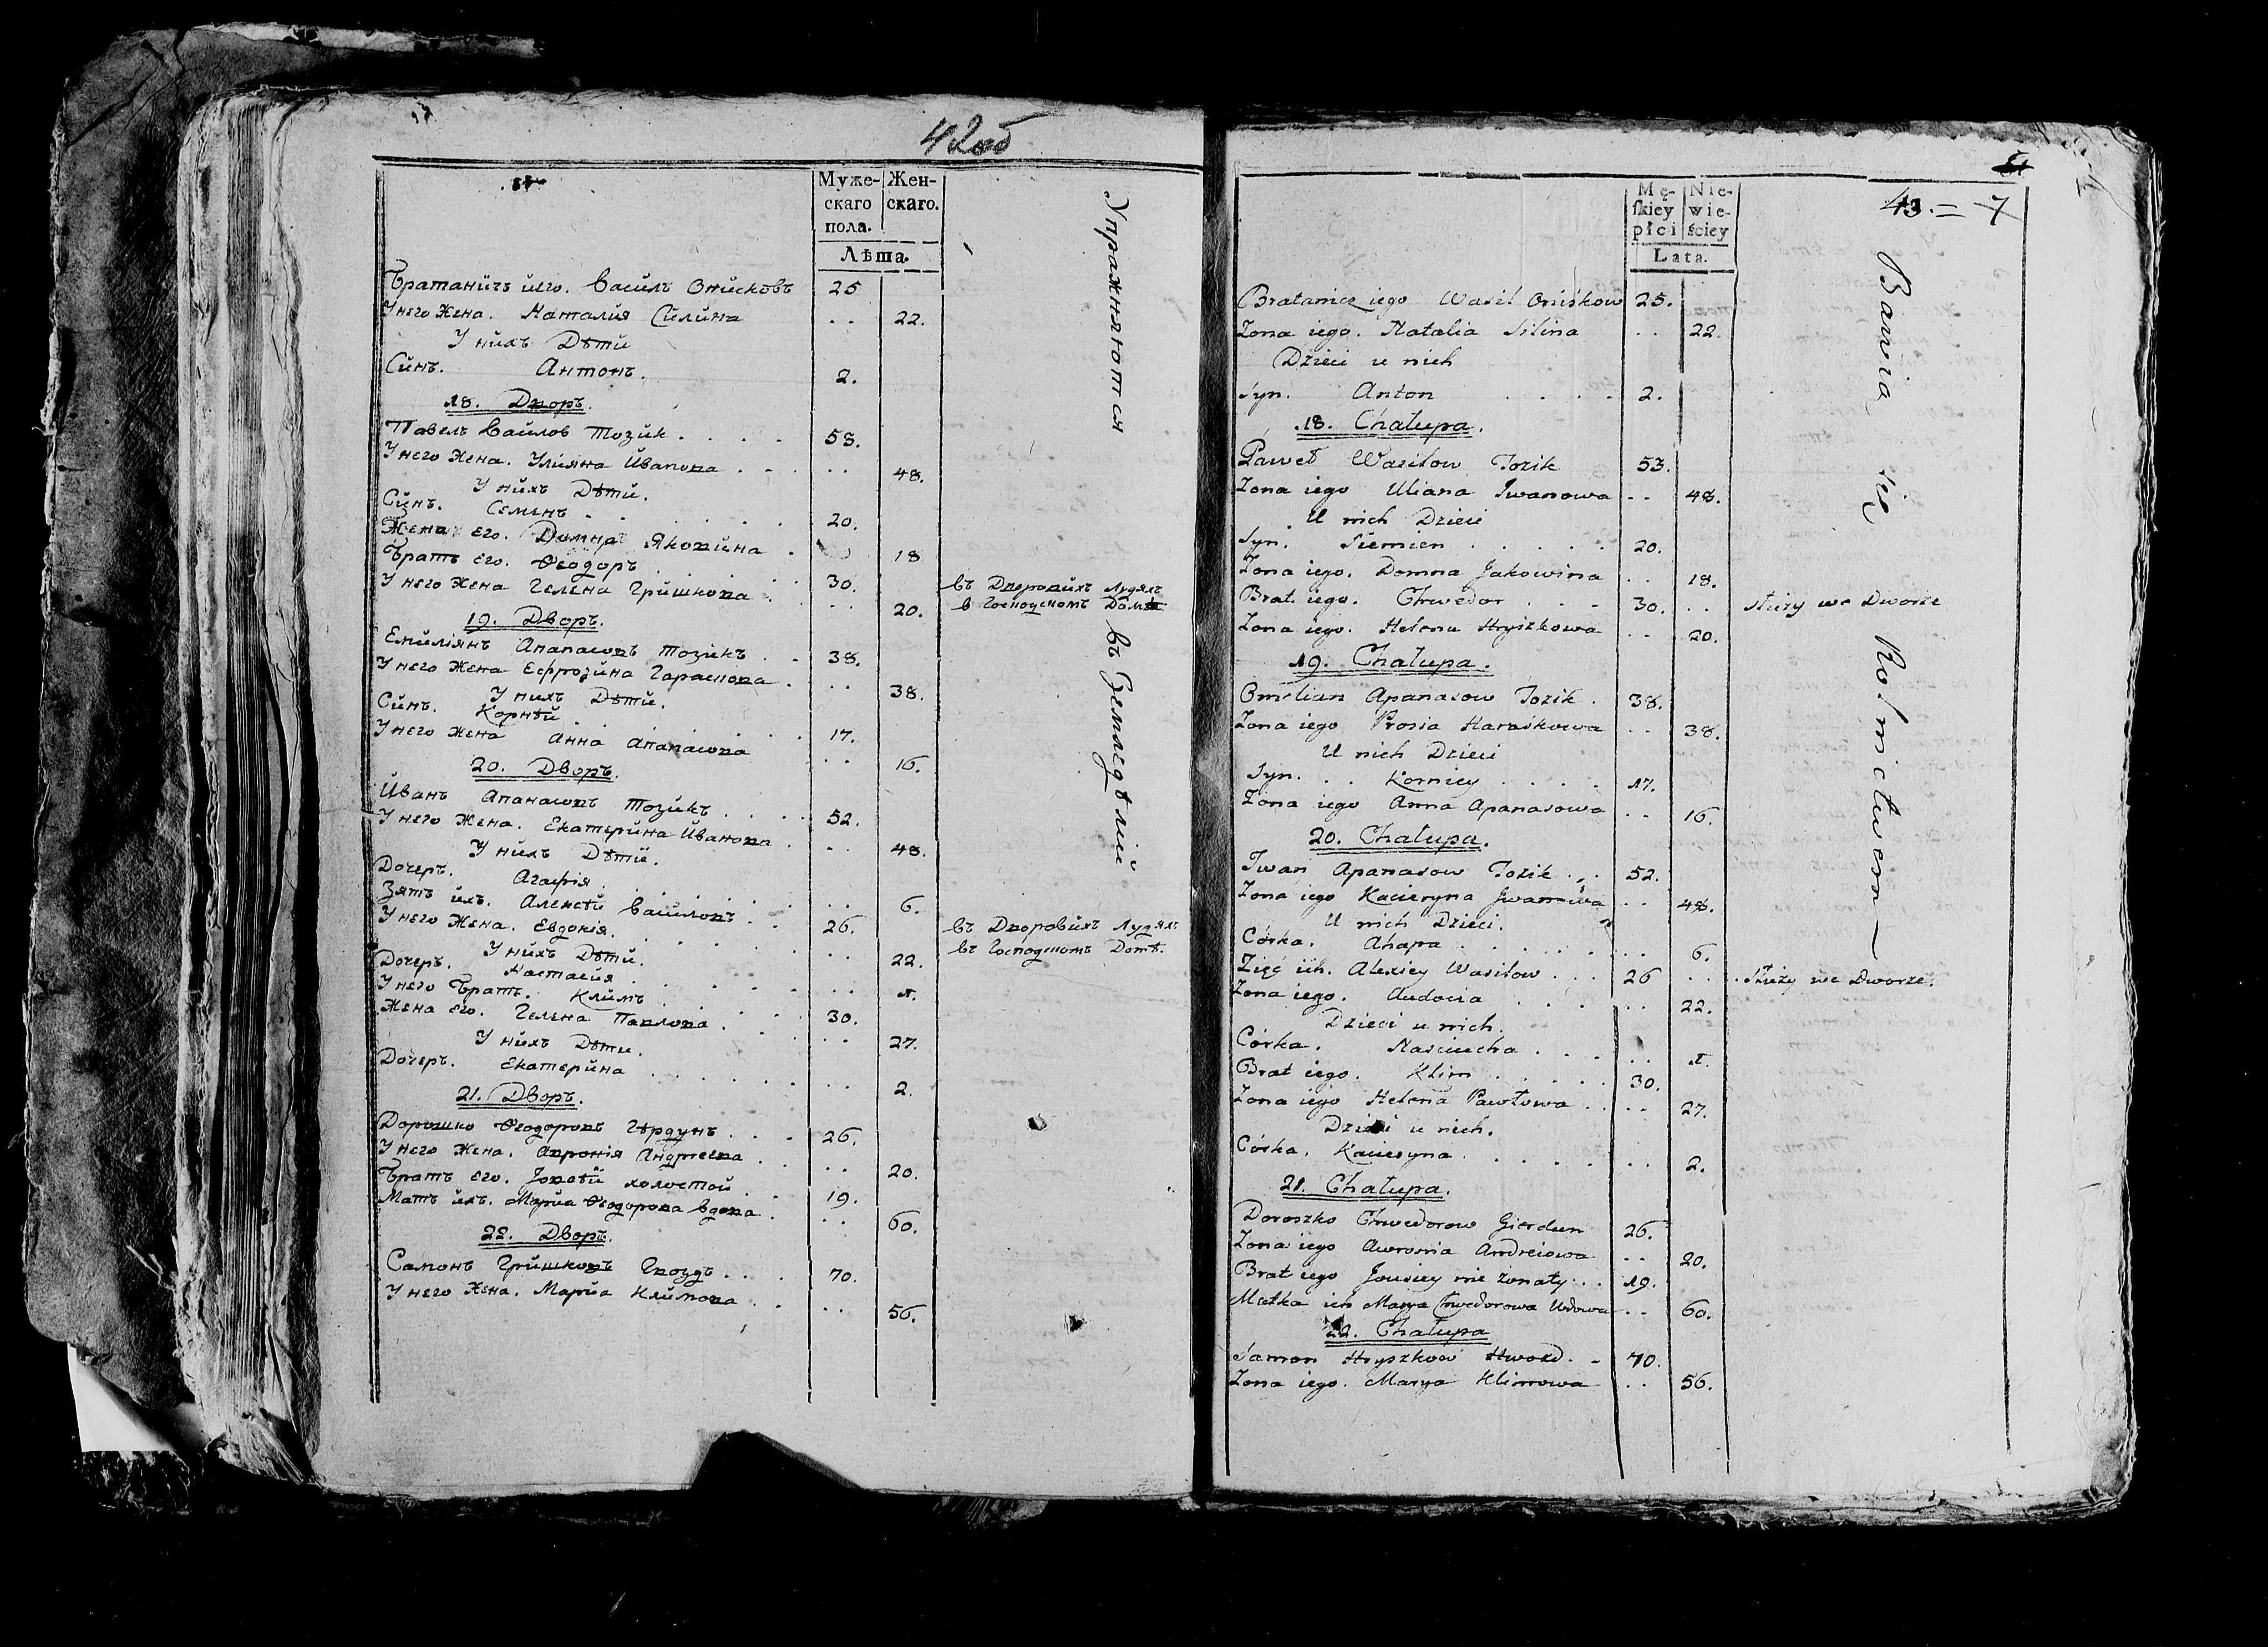 42об
Муже-
скаго
пола.
Жен-
скаго.
Лѣта.
Братаничъ иего. Василъ Онисковъ 25
У него Жена. Наталия Силина .. 22.
У нихъ Дѣти
Синъ. Антонъ. 2.
18. Дворъ.
Павелъ Василов Тозик. 58.
У него Жена. Улияна Иванова .. 48.
У нихъ Дѣти.
Синъ. Семенъ. 20.
Жена его. Домна Яковина 18
Братъ его. Ѳеодоръ 30. въ Дворовихъ Лудяхъ
У него Жена Гелена Гришкова .. 20. в Господскомъ Домѣ
19. Дворъ.
Емилиянъ Апанасовъ Тозикъ. 38.
У него Жена Ефрозина Гараськова .. 38.
У нихъ Дѣти.
Синъ. Корнѣй 17.
У него Жена Анна Апанасова .. 16.
20. Дворъ.
Иванъ Апанасовъ Тозикъ. 52.
У него Жена. Екатерина Иванова .. 48.
У нихъ Дѣти.
Дочеръ. Агафiя .. 6.
Зятъ ихъ. Алексѣй Василовъ. 26. въ Дворовихъ Лудяхъ
У него Жена. Евдокiя. .. 22. въ Господскомъ Домѣ.
У нихъ Дѣти.
Дочеръ. Настасия .. 1.
У него Братъ. Климъ 30.
Жена его. Гелена Павлова. .. 27.
У нихъ Дѣти.
Дочеръ. Екатерина .. 2.
21. Дворъ.
Дорошко Ѳеодоровъ Гердунъ. 26.
У него Жена. Авронiя Андреева .. 20.
Братъ его. холостой 19.
Матъ ихъ. Мария Ѳеодорова вдова. .. 60.
22. Дворъ.
Самонъ Гришковъ Гвоздъ. 70.
У него Жена. Мария Климова .. 56.
Упражняются въ Земледѣлии
43. = 7
Mę-
ſkiey
płci
Nie-
wie-
ściey
Lata.
Bratanicz iego Wasil Oniśkow 25.
Zona iego. Natalia Silina .. 22.
Dzieci u nich
Syn. Anton 2.
18. Chałupa.
Paweł Wasilow Tozik 53.
Zona iego Uliana Iwanowa .. 48.
U nich Dzieci
Syn. Siemien 20.
Zona iego. Domna Jakowina .. 18.
Brat iego. Chwedor 30. .. słuzy we Dworze
Zona iego. Helena Hryszkowa .. 20.
19. Chałupa.
Omelian Apanasow Tozik. 38.
Zona iego Prosia Haraśkowa .. 38.
U nich Dzieci
Syn. Korniey 17.
Zona iego Anna Apanasowa .. 16.
20. Chałupa.
Iwan Apanasow Tozik 52.
Zona iego Kacieryna Iwanowa .. 48.
U nich Dzieci.
Córka. Ahapa .. 6.
Zięć ich. Alexiey Wasilow 26 .. Słuzy we Dworze.
Zona iego. Audocia .. 22.
Dzieci u nich.
Córka. Nasciucha .. 1.
Brat iego. Klim 30.
Zona iego Helena Pawłowa .. 27.
Dzieci u nich.
Córka. Kacieryna .. 2.
21. Chałupa.
Doroszko Chwedorow Gierdun 26.
Zona iego Awronia Andreiowa .. 20.
Brat iego nie zonaty 19.
Matka ich Marya Chwedorowa Wdowa .. 60.
22. Chałupa
Samon Hryszkow Hwozd. 70.
Zona iego. Marya Klimowa .. 56.
Bawia się Rolnictwem